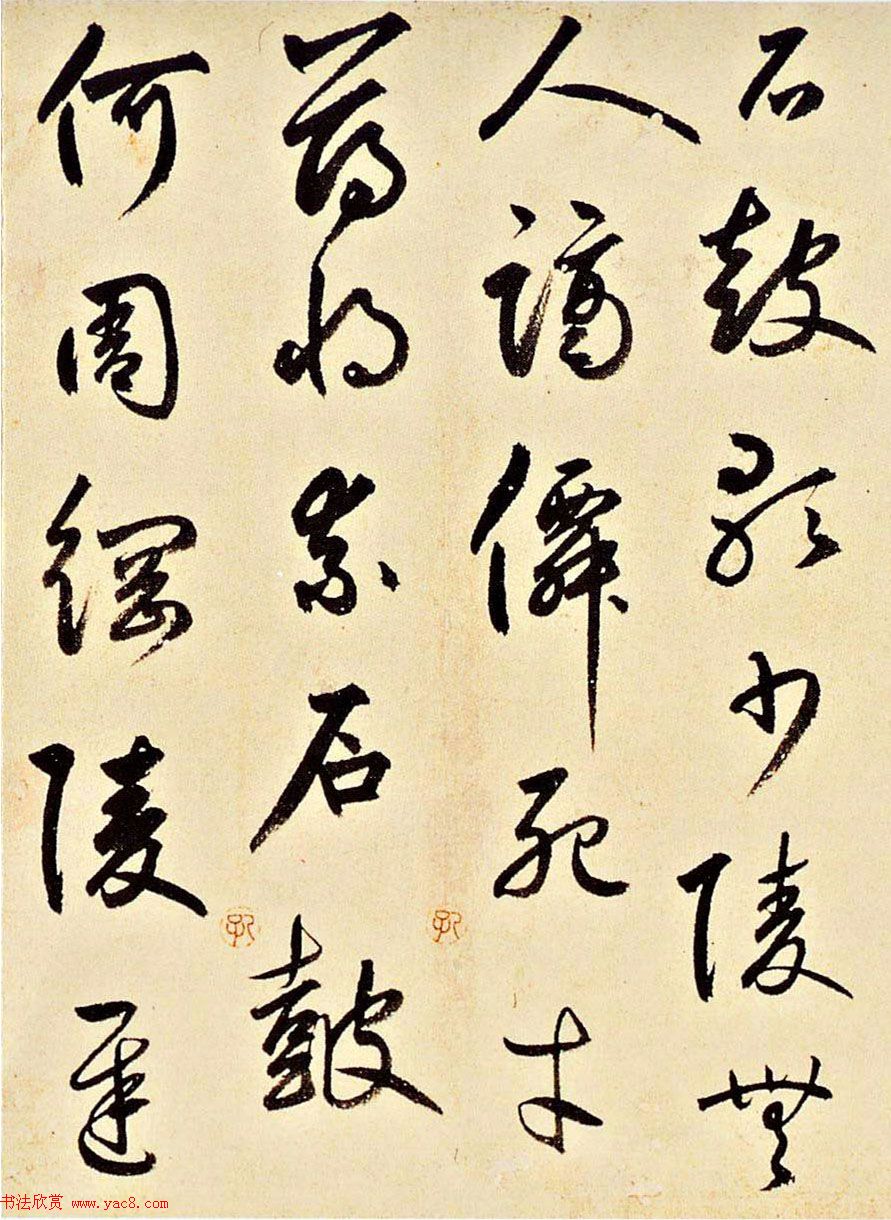 石鼓歌少陵無
人謫僊死才
薄將柰石鼓
何周綱陵遲
书法欣赏 www.yac8.com